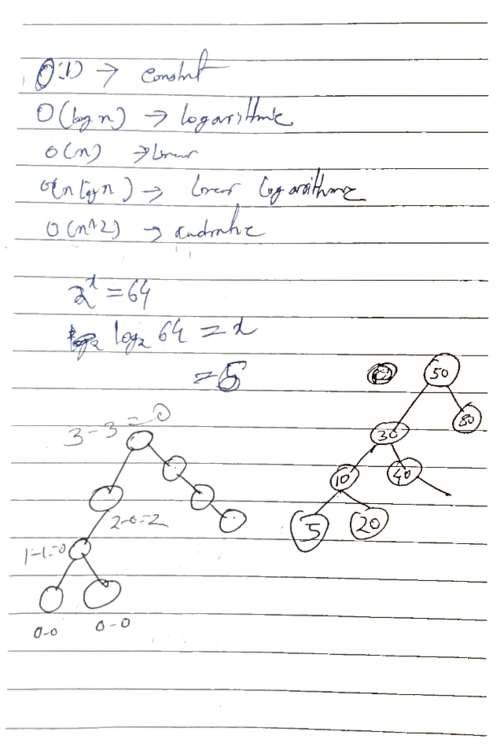 O(1) → constnt
O(log n) → logarithmic
O(n) → linear
O(n log n) → linear logarithmic
O(n^2) →
2^x = 64
log₂ 64 = x
3-3=0
50
80
30
10
40
5
20
2-0=2
1-1=0
0-0
0-0